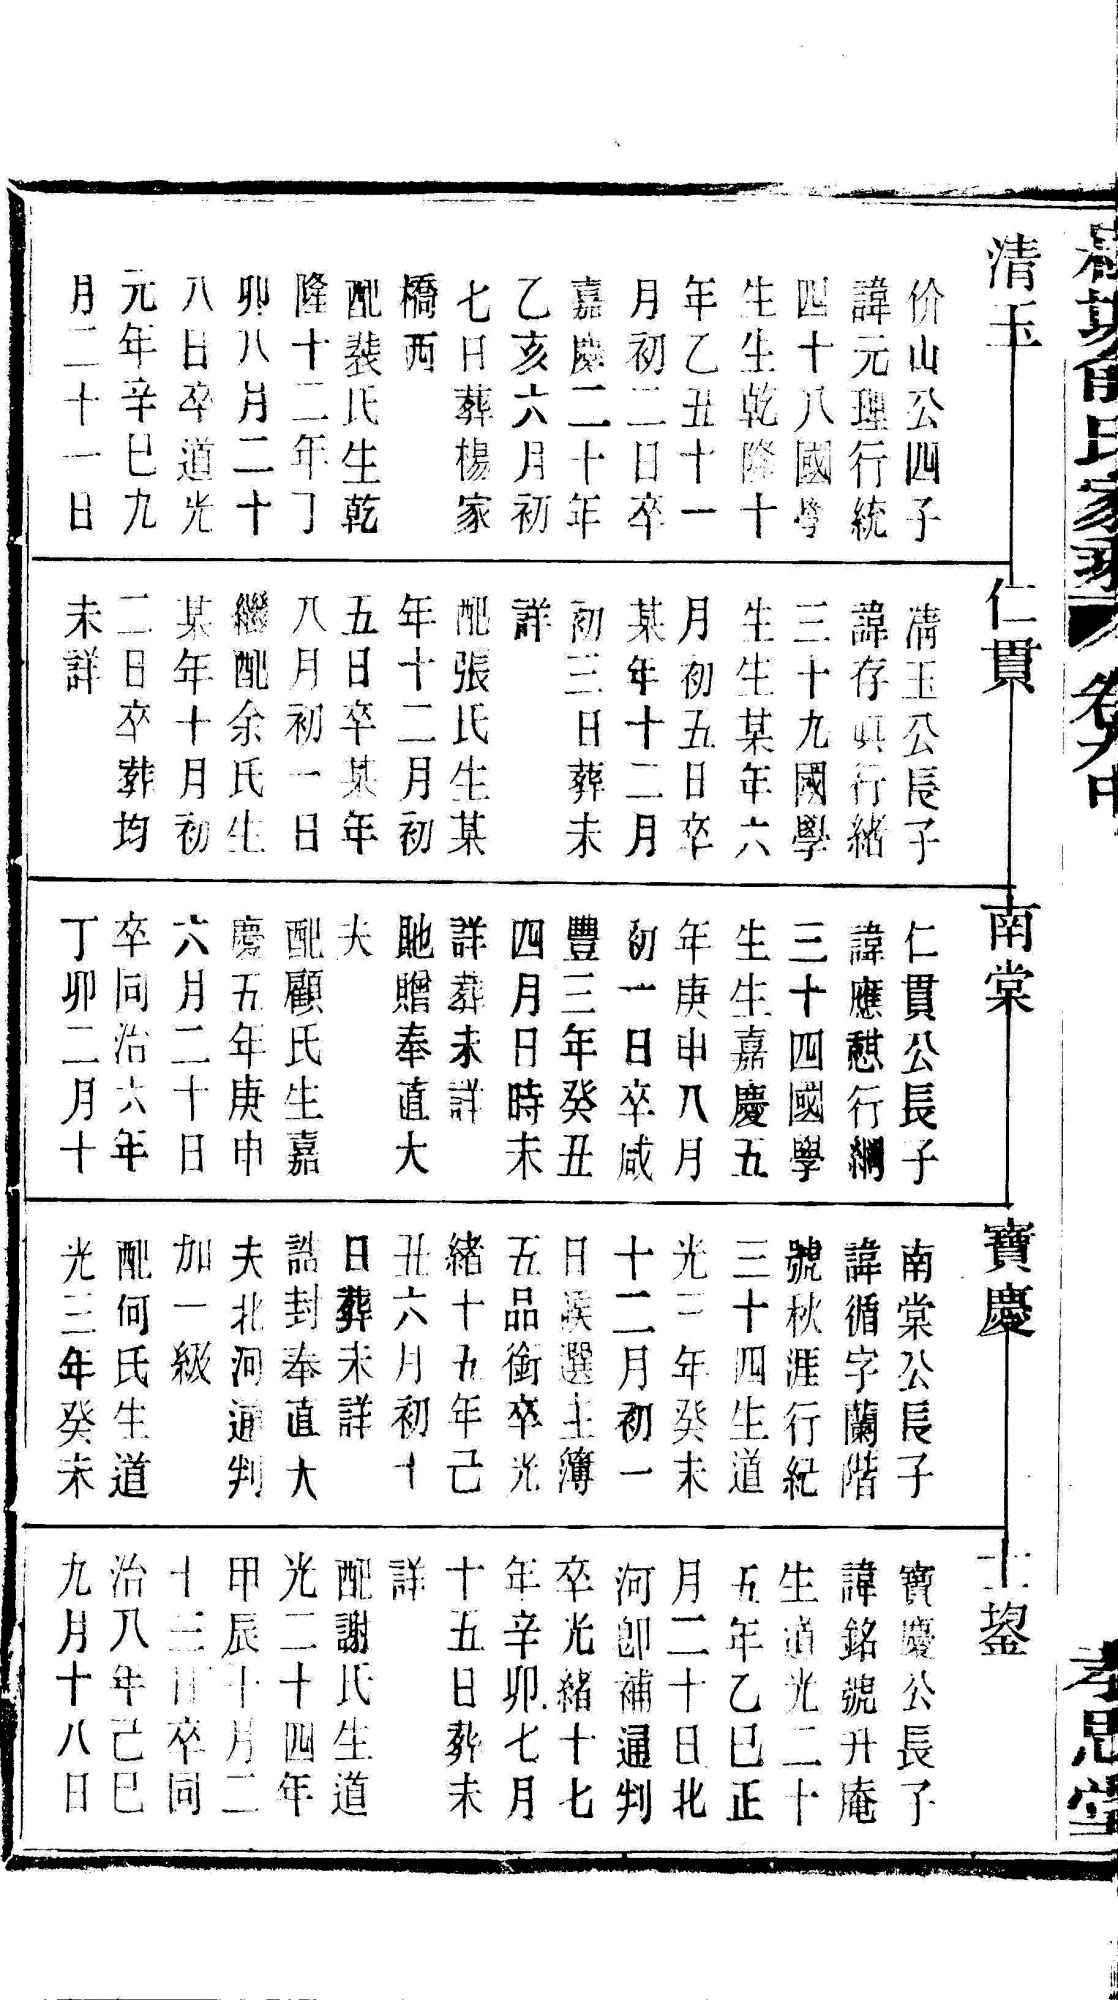 氏家乘
卷九中
孝思堂
清玉
价山公四子
諱元理行統
四十八國學
生生乾隆十
年乙丑十一
月初二日卒
嘉慶二十年
乙亥六月初
七日葬楊家
橋西
配裴氏生乾
隆十二年丁
卯八月二十
八日卒道光
元年辛巳九
月二十一日
仁貫
清玉公長子
諱存興行緒
三十九國學
生生某年六
月初五日卒
某年十二月
初三日葬未
詳
配張氏生某
年十二月初
五日卒某年
八月初一日
繼配余氏生
某年十月初
二日卒葬均
未詳
南棠
仁貫公長子
諱應憇行綱
三十四國學
生生嘉慶五
年庚申八月
初一日卒咸
豐三年癸丑
四月日時未
詳葬未詳
貤贈奉直大
夫
配顧氏生嘉
慶五年庚申
六月二十日
卒同治六年
丁卯二月十
寶慶
南棠公長子
諱循字蘭階
號秋涯行紀
三十四生道
光三年癸未
十二月初一
日候選主簿
五品銜卒光
緒十五年己
丑六月初十
日葬未詳
誥封奉直大
夫北河通判
加一級
配何氏生道
光三年癸未
士鋆
寶慶公長子
諱銘號升庵
生道光二十
五年乙巳正
月二十日北
河卽補通判
卒光緒十七
年辛卯七月
十五日葬未
詳
配謝氏生道
光二十四年
甲辰十月二
十三日卒同
治八年己巳
九月十八日